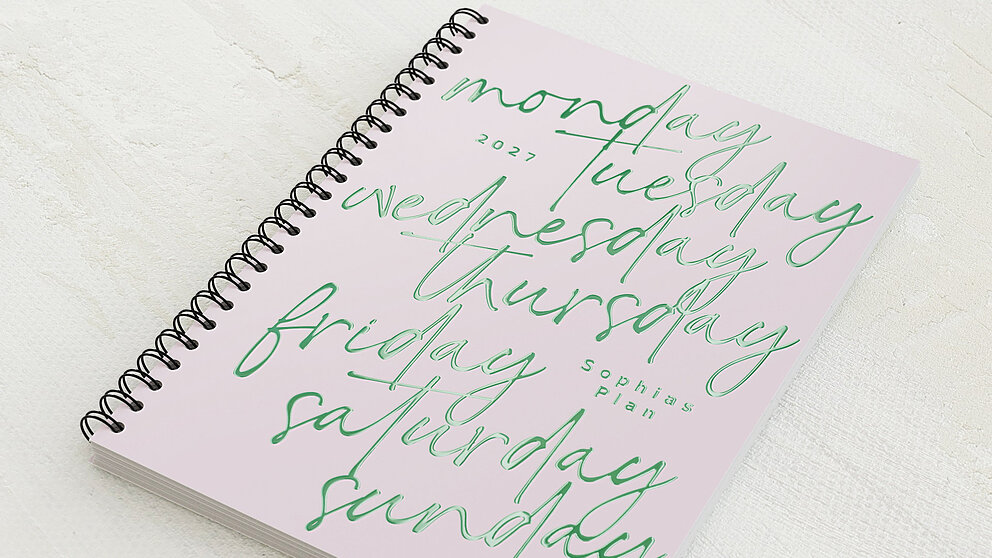 monday
2027
tuesday
wednesday
thursday
friday
Sophias
Plan
saturday
sunday